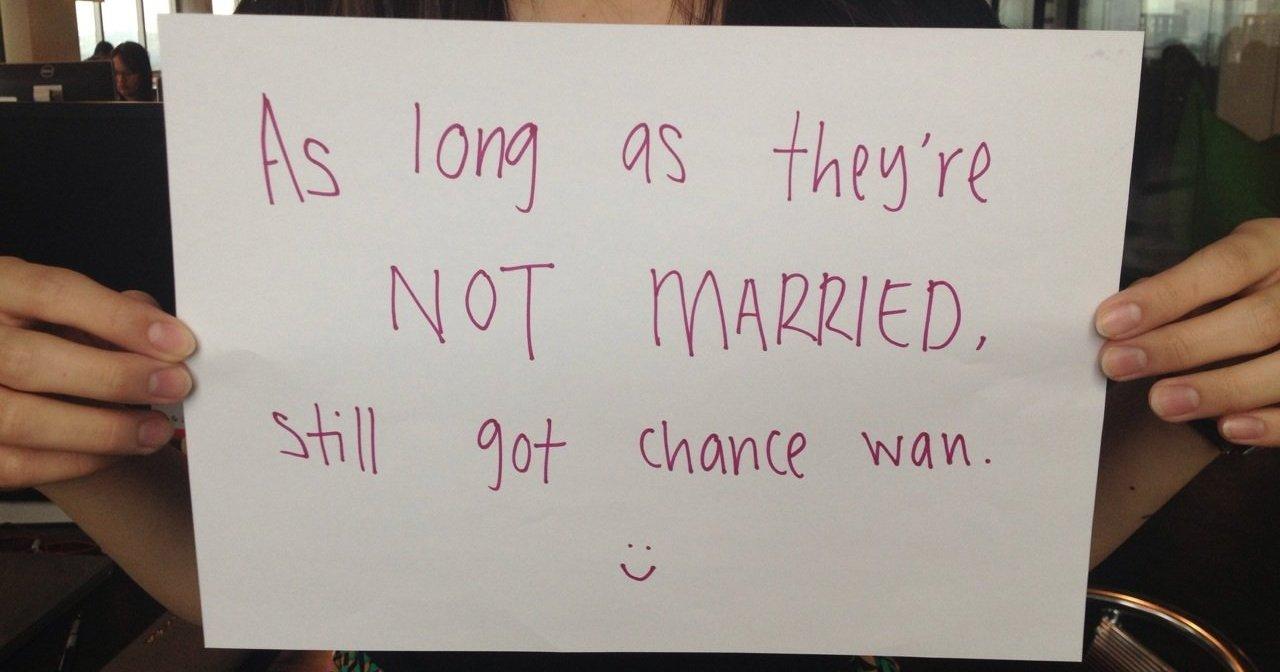 As long as they're
NOT MARRIED,
still got chance wan.